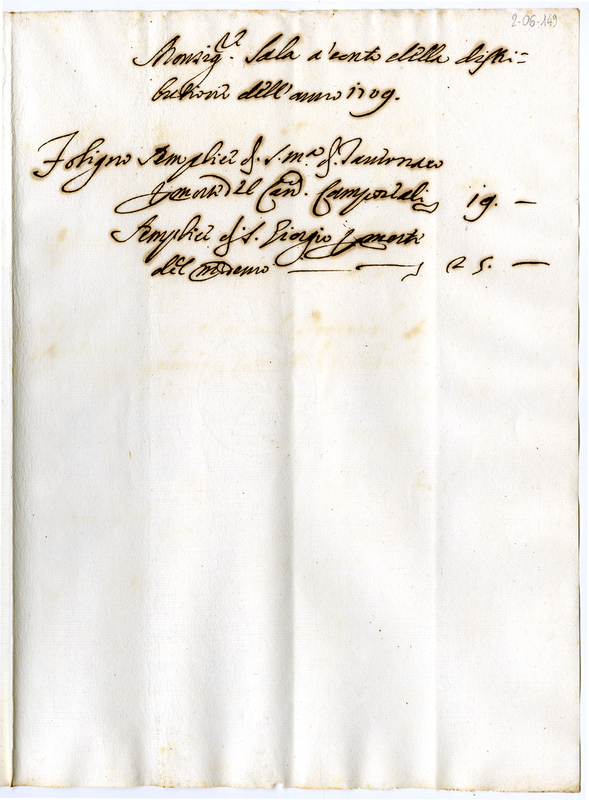 2-06-149
Monsig.re Sala a' conto della distri=
butione dell'anno 1709.
Foligno Semplici di S. M.a di
p morte del Can.o Camporeali 19. —
Semplici di S. Giorgio p morte
del md.emo — 25. —